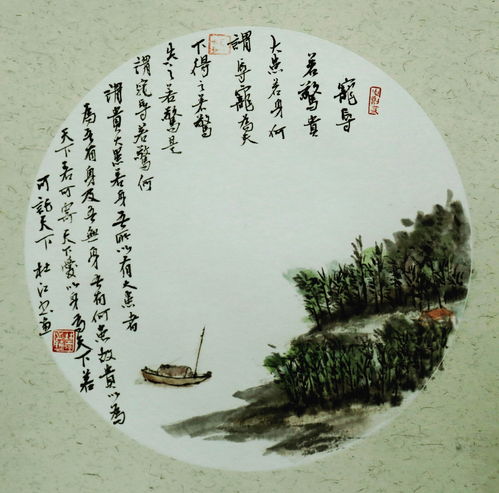 寵辱
若驚貴
大患若身何
謂辱寵為天
下得之若驚
失之若驚是
謂寵辱若驚何
謂貴大患若身吾所以有大患者
為吾有身及吾無身吾有何患故貴以為
天下若可寄天下愛以身為天下若
可託天下 杜江畫